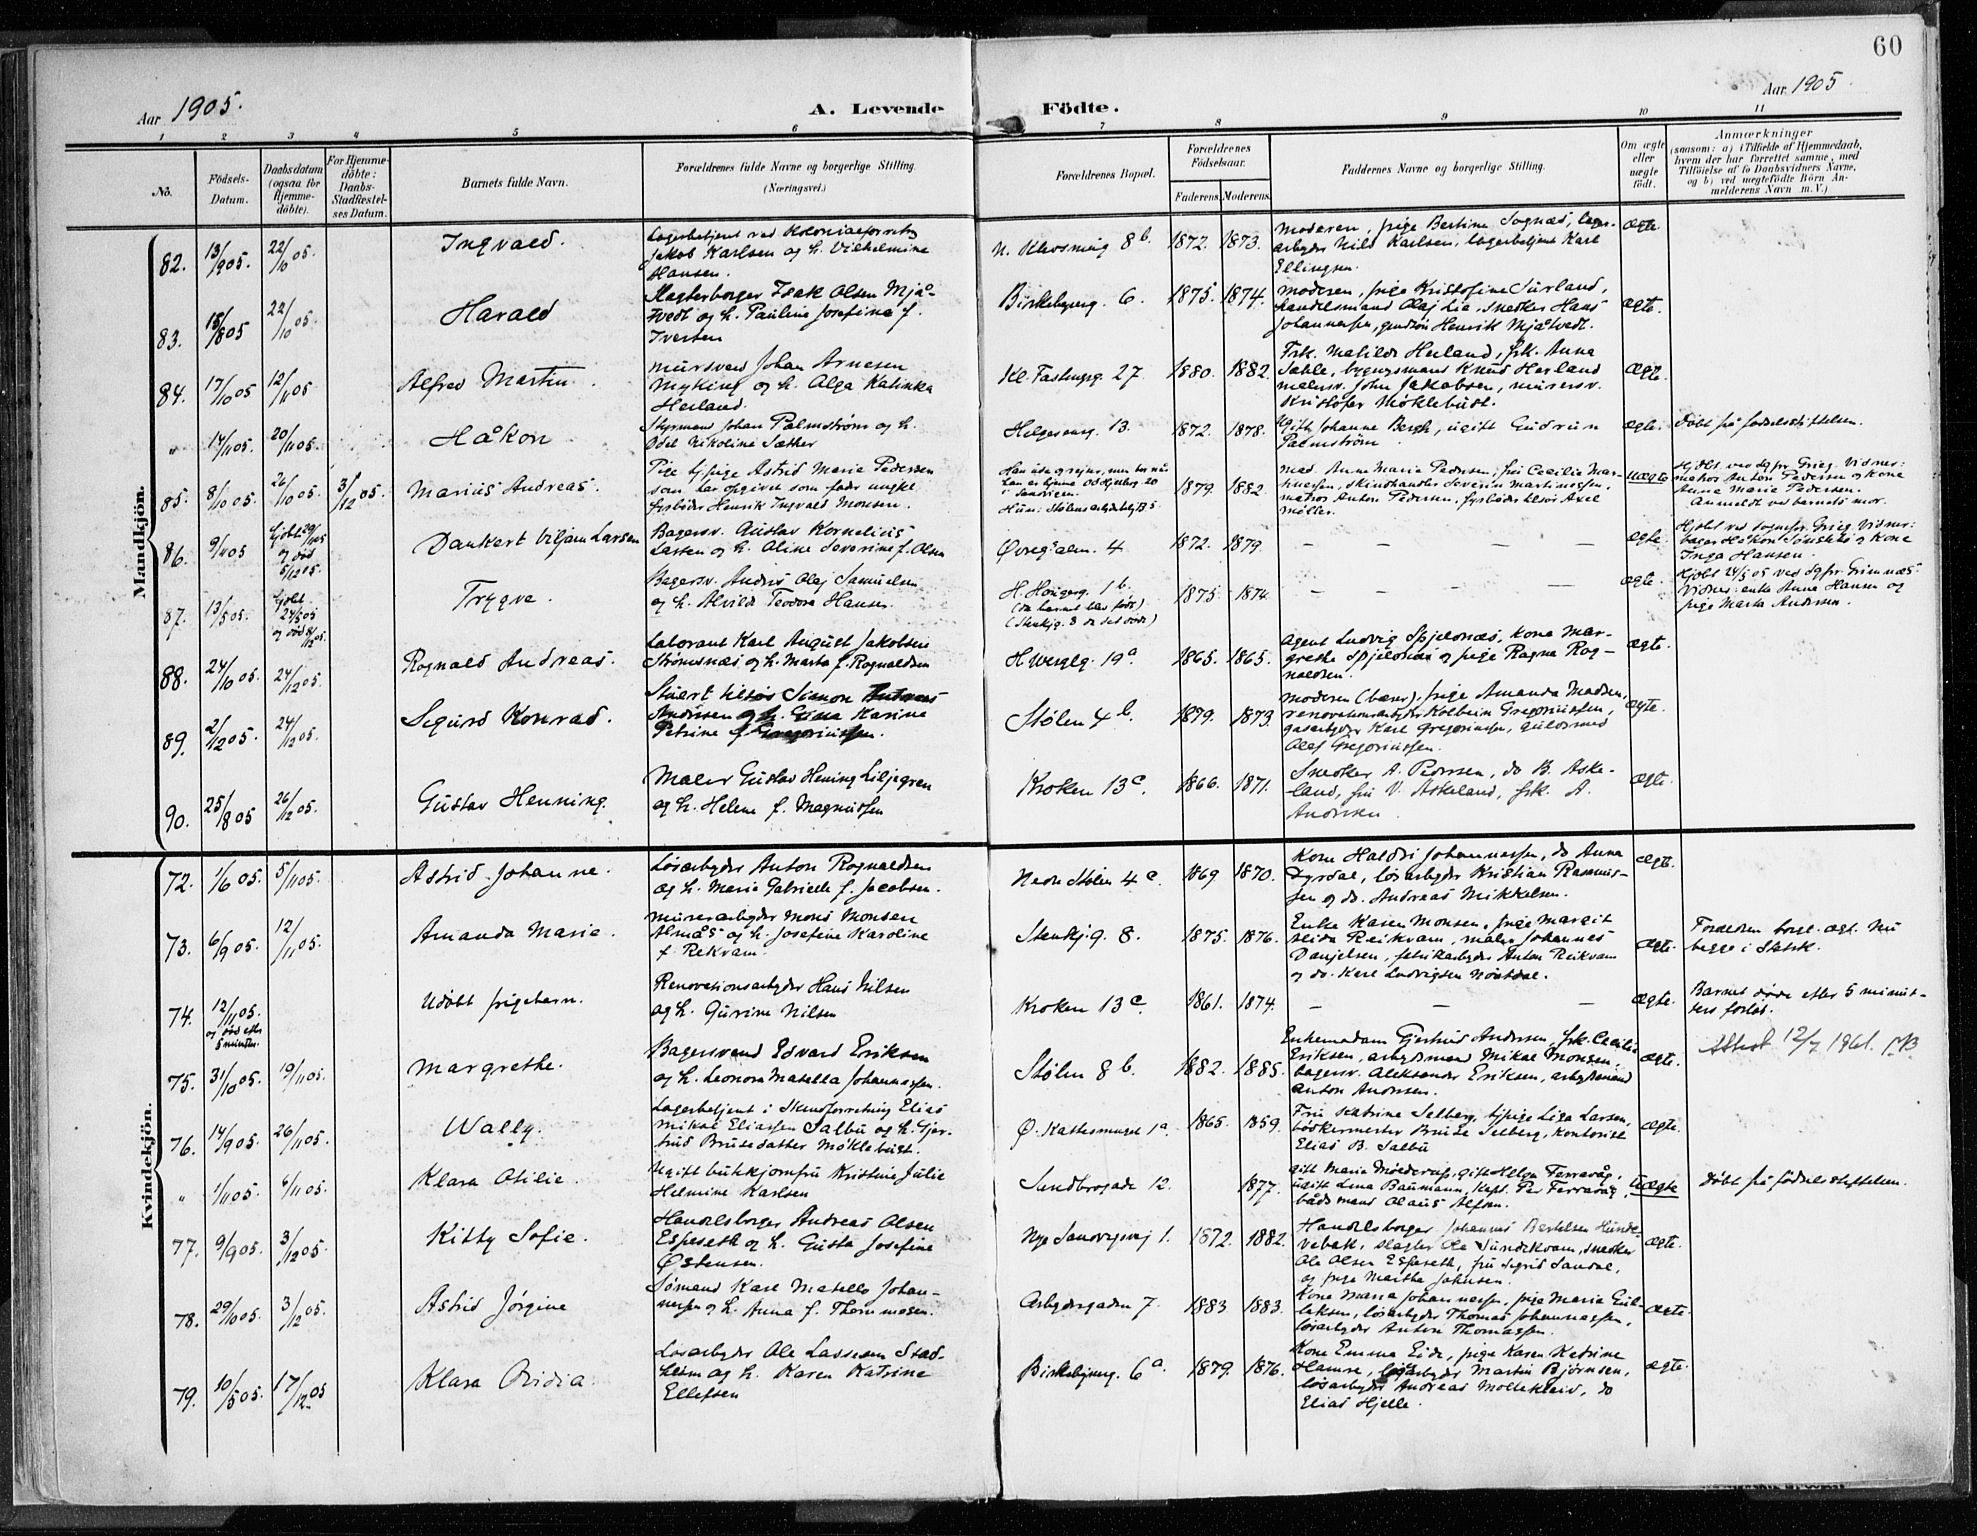 60
Aar 1905.
A. Levende Födte.
Aar 1905
1 2 3 4 5 6 7 8 9 10 11
No.
Födsels-Datum.
Daabsdatum (ogsaa for Hjemme-döbte).
For Hjemme-döbte: Daabs-Stadfæstel-ses Datum.
Barnets fulde Navn.
Forældrenes fulde Navne og borgerlige Stilling. (Næringsvei.)
Forældrenes Bopæl.
Forældrenes Födselsaar.
Faderens. Moderens.
Faddernes Navne og borgerlige Stilling.
Om ægte eller uægte födt.
Anmærkninger
(saasom: a) i Tilfælde af Hjemmedaab,
hvem der har forrettet samme, med
Tilföielse af to Daabsvidners Navne,
og b) ved uægtefödte Börn An-
melderens Navn m. V.)
Mandkjön.
82. 13/9 05. 22/10 05. Ingvald.
Lagerbetjent ved Kolonialforretn
Jakob Karlsen og h. Vilhelmine
Hansen.
N. Klevsmug 8 b. 1872. 1873.
moderen, pige Bertine Sognæs, lager-
arbeyder Nils Karlsen, lagerbetjent Karl
Ellingsen.
ægte.
83. 15/8 05 22/10 05. Harald
Slagterborger Isak Olsen Mjå-
tvedt og h. Pauline Josefine f.
Iversen
Birkebeyerg. 6. 1875. 1874.
moderen, pige Kristofine Surland,
handelsmand Olaf Lie, snekker Hans
Johannessen, Henrik Mjåtvedt.
ægte.
84. 17/10 05 12/11 05 Alfred Martin.
mursvend Johan Arnesen
Myking og h. Olga Katinka
Heiland.
Kl. Fastingsg. 27 1880. 1882.
Frk. Matilde Heiland, frk. Anna
Sahle, bygningsmand Knud Herland
malersv. John Jakobsen, murersv.
Kristofer Møklebust.
ægte.
" 14/11 05. 20/11 05. Håkon
Styrmand Johan Palmstrøm og h.
Odel Nikoline Sæther
Helgesensg. 13. 1872. 1878.
Ugift Johanne Bergh, ugift Gudrun
Palmstrøm
ægte. døbt på fødselsstiftelsen.
85. 8/10 05. 26/10 05. 3/12 05. Marius Andreas.
Pige tj.pige Astrid Marie Pedersen
som har opgivet som fader ungkl.
fyrbøder Henrik Ingvald Monsen.
1879. 1882.
mad. Anne Marie Pedersen, frk Cecilie Mar-
tinussen, skindhandler Severin Martinussen,
matros Anton Pedersen, fyrbøder Axel
Møller.
uægte
Hjdbt. ved sgpr. Grieg. Vidner:
matros Anton Pedersen og kone
Anna Marie Pedersen.
Anmeldt ved barnets mor.
86. 9/11 05 hjdbt. 29/11 05 og død 5/12 05. Dankert Viljam Larsen
Bagersv. Gustav Kornelius
Larsen og h. Oline Severine f. Olsen
Øvregt.alm. 4 1872. 1879. — — — —
ægte.
Hjdbt ved sognepr. Grieg. Vidner:
bager Håkon og kone
Inga Hansen.
87. 13/5 05. hjdbt. 24/5 05 og død 8/12 05. Trygve.
Bagersv. Andreas Olaj Samuelsen
og h. Alvilde Teodora Hansen
H. Haugeg. 1 b.
(da barnet blev født)
(Stenkjg. 8 da det døde)
1875. 1874. — — — —
ægte.
Hjdbt 24/5 05 ved sgpr. Grimnæs.
Vidner: enke Anna Hansen og
pige Marta Andersen.
88. 24/10 05. 24/12 05. Rognald Andreas.
Laborant Karl August Jakobsen
Strømsnæs og h. Marta f. Rognaldsen
H Wergelg. 19 a 1865. 1865.
Agent Ludvig Spjeldnæs, kone Mar-
grethe Spjeldnæs og pige Ragna Rog-
naldsen.
ægte.
89. 2/12 05. 24/12 05. Sigurd Konrad.
Stuert tilsøs Simon
Andersen og h. Gina Karine
Petrine f Gregoriussen.
Stølen 4 b. 1879. 1873.
moderen (bærer), pige Amanda Madsen,
renovationsarbeyder Kolbein Gregoriussen,
gasarbeyder Karl Gregoriussen, guldsmed
Olaf Gregoriussen.
ægte.
90. 25/8 05 26/12 05. Gustav Henning.
Maler Gustav Hening Liljegren
og h. Helene f. Magnussen
Kroken 13 c. 1866. 1871.
Snekker A. Pedersen, do B. Aske-
land, fru V. Askeland, frk. A.
Andersen.
ægte.
Kvindekjön.
72. 1/6 05. 5/11 05. Astrid Johanne.
Løsarbeyder Anton Rognaldsen
og h. Marie Gabrielle f. Jacobsen.
Nedre Stølen 4 c. 1869 1870.
Kone Haldis Johannessen, do Anna
Dyrdal, løsarbeyder Kristian Rasmus-
sen og do. Andreas Mikkelsen.
ægte.
73. 6/9 05. 12/11 05. Amanda Marie.
murerarbeyder Mons Monsen
Almås og h. Josefine Karoline
f. Rekvam.
Stenkjg. 8. 1875. 1876.
Enke Karen Monsen, pige Margit
Alida Reikvam, maler Johannes
Danjelsen, fabrikarbeyder Anton Reikvam
og do. Karl Ludvigsen Nøstdal.
ægte.
Forældren borgl. ægt. Nu
begge i Statsk.
74. 12/11 05. og død efter 5 minuter. Udøbt pigebarn.
Renovationsarbeyder Hans Nilsen
og h. Gurine Nilsen
Kroken 13 c. 1861. 1874. — — —
ægte.
Barnet døde efter 5 minut-
ters forløb.
75. 31/10 05. 19/11 05. Margrethe.
Bagersvend Edvard Eriksen
og h. Leonora Matella Johannessen.
Stølen 8 b. 1882. 1885.
Enkemadam Gjertrud Andersen, frk. Cecilie
Eriksen, arbeydsmand Mikal Monsen,
bagersv. Aleksander Eriksen, arbeydsmand
Anton Andersen.
ægte.
Attest 12/7 1961. MB
76. 14/9 05. 26/11 05. Wally.
Lagerbetjent i Skindforretning Elias
Mikal Eliassen Salbu og h. Gjer-
trud Brusedatter Møklebust.
Ø. Kattesmuget 1 a. 1865. 1859.
Fru Katrine Selberg, tj.pige Liga Larsen,
bødkermester Brude Selberg, kontorist
Elias B. Salbu
ægte.
" 1/11 05. 6/11 05. Klara Otilie.
Ugift butikjomfru Kristine Julie
Helmine Karlsen
Sandbrogade 12. 1877.
gift Marie, gift Helga Ferravåg,
ugift Lina Baumann, kapt. Per Ferravåg,
bådsmand Olaus Alfsen.
uægte
døbt på fødselsstiftelsen.
77. 9/9 05. 3/12 05. Kitty Sofie.
Handelsborger Andreas Olsen
Espeseth og h. Gusta Josefine
Østensen.
Nye Sandvigsvej 1. 1872. 1882.
Handelsborger Johannes Bertelsen Hunde-
vebak, slagter Ole Sundekvam, snekker
Ole Olsen Espeseth, fru Sigrid Sandal,
og pige Martha Johnsen.
ægte.
78. 29/10 05. 3/12 05. Astrid Jørgine
Sømand Karl Matello Johan-
nessen og h. Anna f. Thommesen.
Arbeydergaden 7. 1883. 1883.
Kone Maria Johannessen, pige Maria Gul-
laksen, løsarbeyder Thomas Johannessen,
løsarbeyder Anton Thomassen.
ægte
79. 10/5 05. 17/12 05 Klara Ovidia.
Løsarbeyder Ole Lassesen Stad-
heim og h. Karen Katrine
Ellefsen
Birkebeynerg. 6 a. 1879. 1876.
Kone Emma Eide, pige Karen Katrine
Hamre, løsarbeyder Martin Bjørnsen,
løsarbeyder Andreas Moltekleiv, do
Elias Hjelle.
ægte.